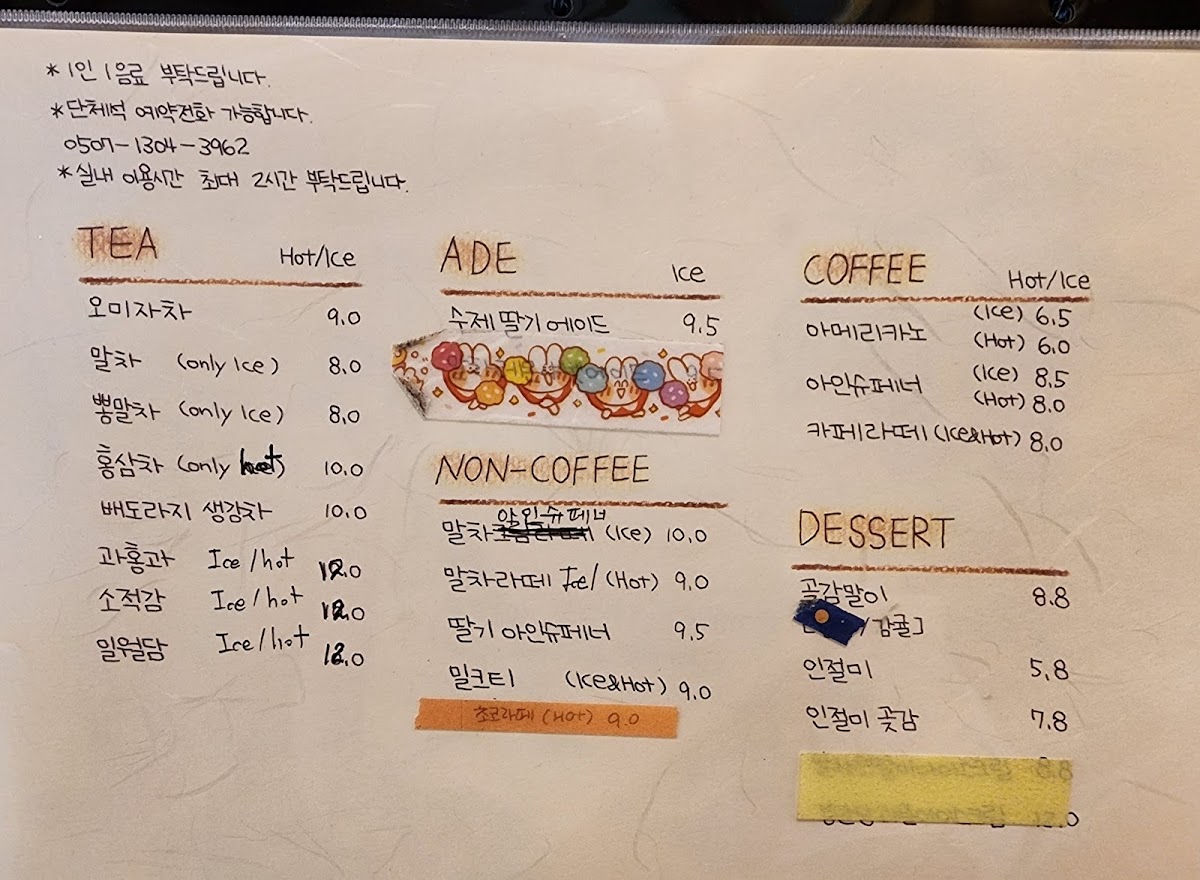 *1인 1음료 부탁드립니다.
*단체석 예약전화 가능합니다.
0507-1304-3962
*실내 이용시간 최대 2시간 부탁드립니다.
TEA Hot/Ice
오미자차 9.0
말차 (only Ice) 8.0
뽕말차 (only Ice) 8.0
홍삼차 (only hot) 10.0
배도라지 생강차 10.0
과홍과 Ice/hot
소적감 Ice/hot
일월담 Ice/hot
ADE Ice
수제 딸기에이드 9.5
NON-COFFEE
말차아인슈페너 (Ice) 10.0
말차라떼 Ice/(Hot) 9.0
딸기 아인슈페너 9.5
밀크티 (Ice&Hot) 9.0
초코라떼 (Hot) 9.0
COFFEE Hot/Ice
아메리카노 (Ice) 6.5
(Hot) 6.0
아인슈페너 (Ice) 8.5
(Hot) 8.0
카페라떼 (Ice&Hot) 8.0
DESSERT
곶감말이 8.8
/감귤]
인절미 5.8
인절미 곶감 7.8
8.8